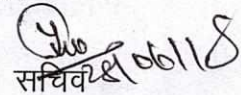 सचिव 28/06/18